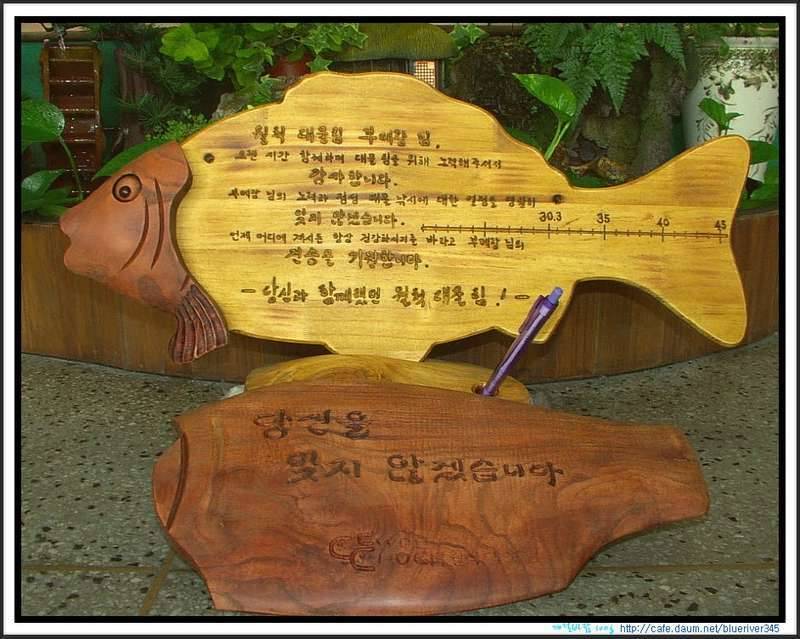 월척 대물팀 부매랑 님.
오랜 시간 함께하며 대물팀을 위해 노력해주셔서
감사합니다.
부메랑 님의 노력과 점심 대물 낚시에 대한 열정을 영원히
잊지 않겠습니다.
언제 어디에 계시든 항상 건강하시기를 바라고 부메랑 님의
건승을 기원합니다.
- 당신과 함께했던 월척 대물팀 ! -
30.3 35 40 45
당신을
잊지 않겠습니다
http://cafe.daum.net/blueriver345